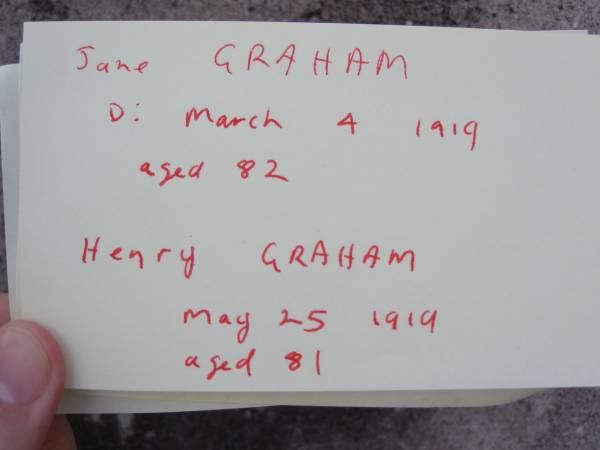 Jane GRAHAM
D: March 4 1919
aged 82
Henry GRAHAM
May 25 1919
aged 81